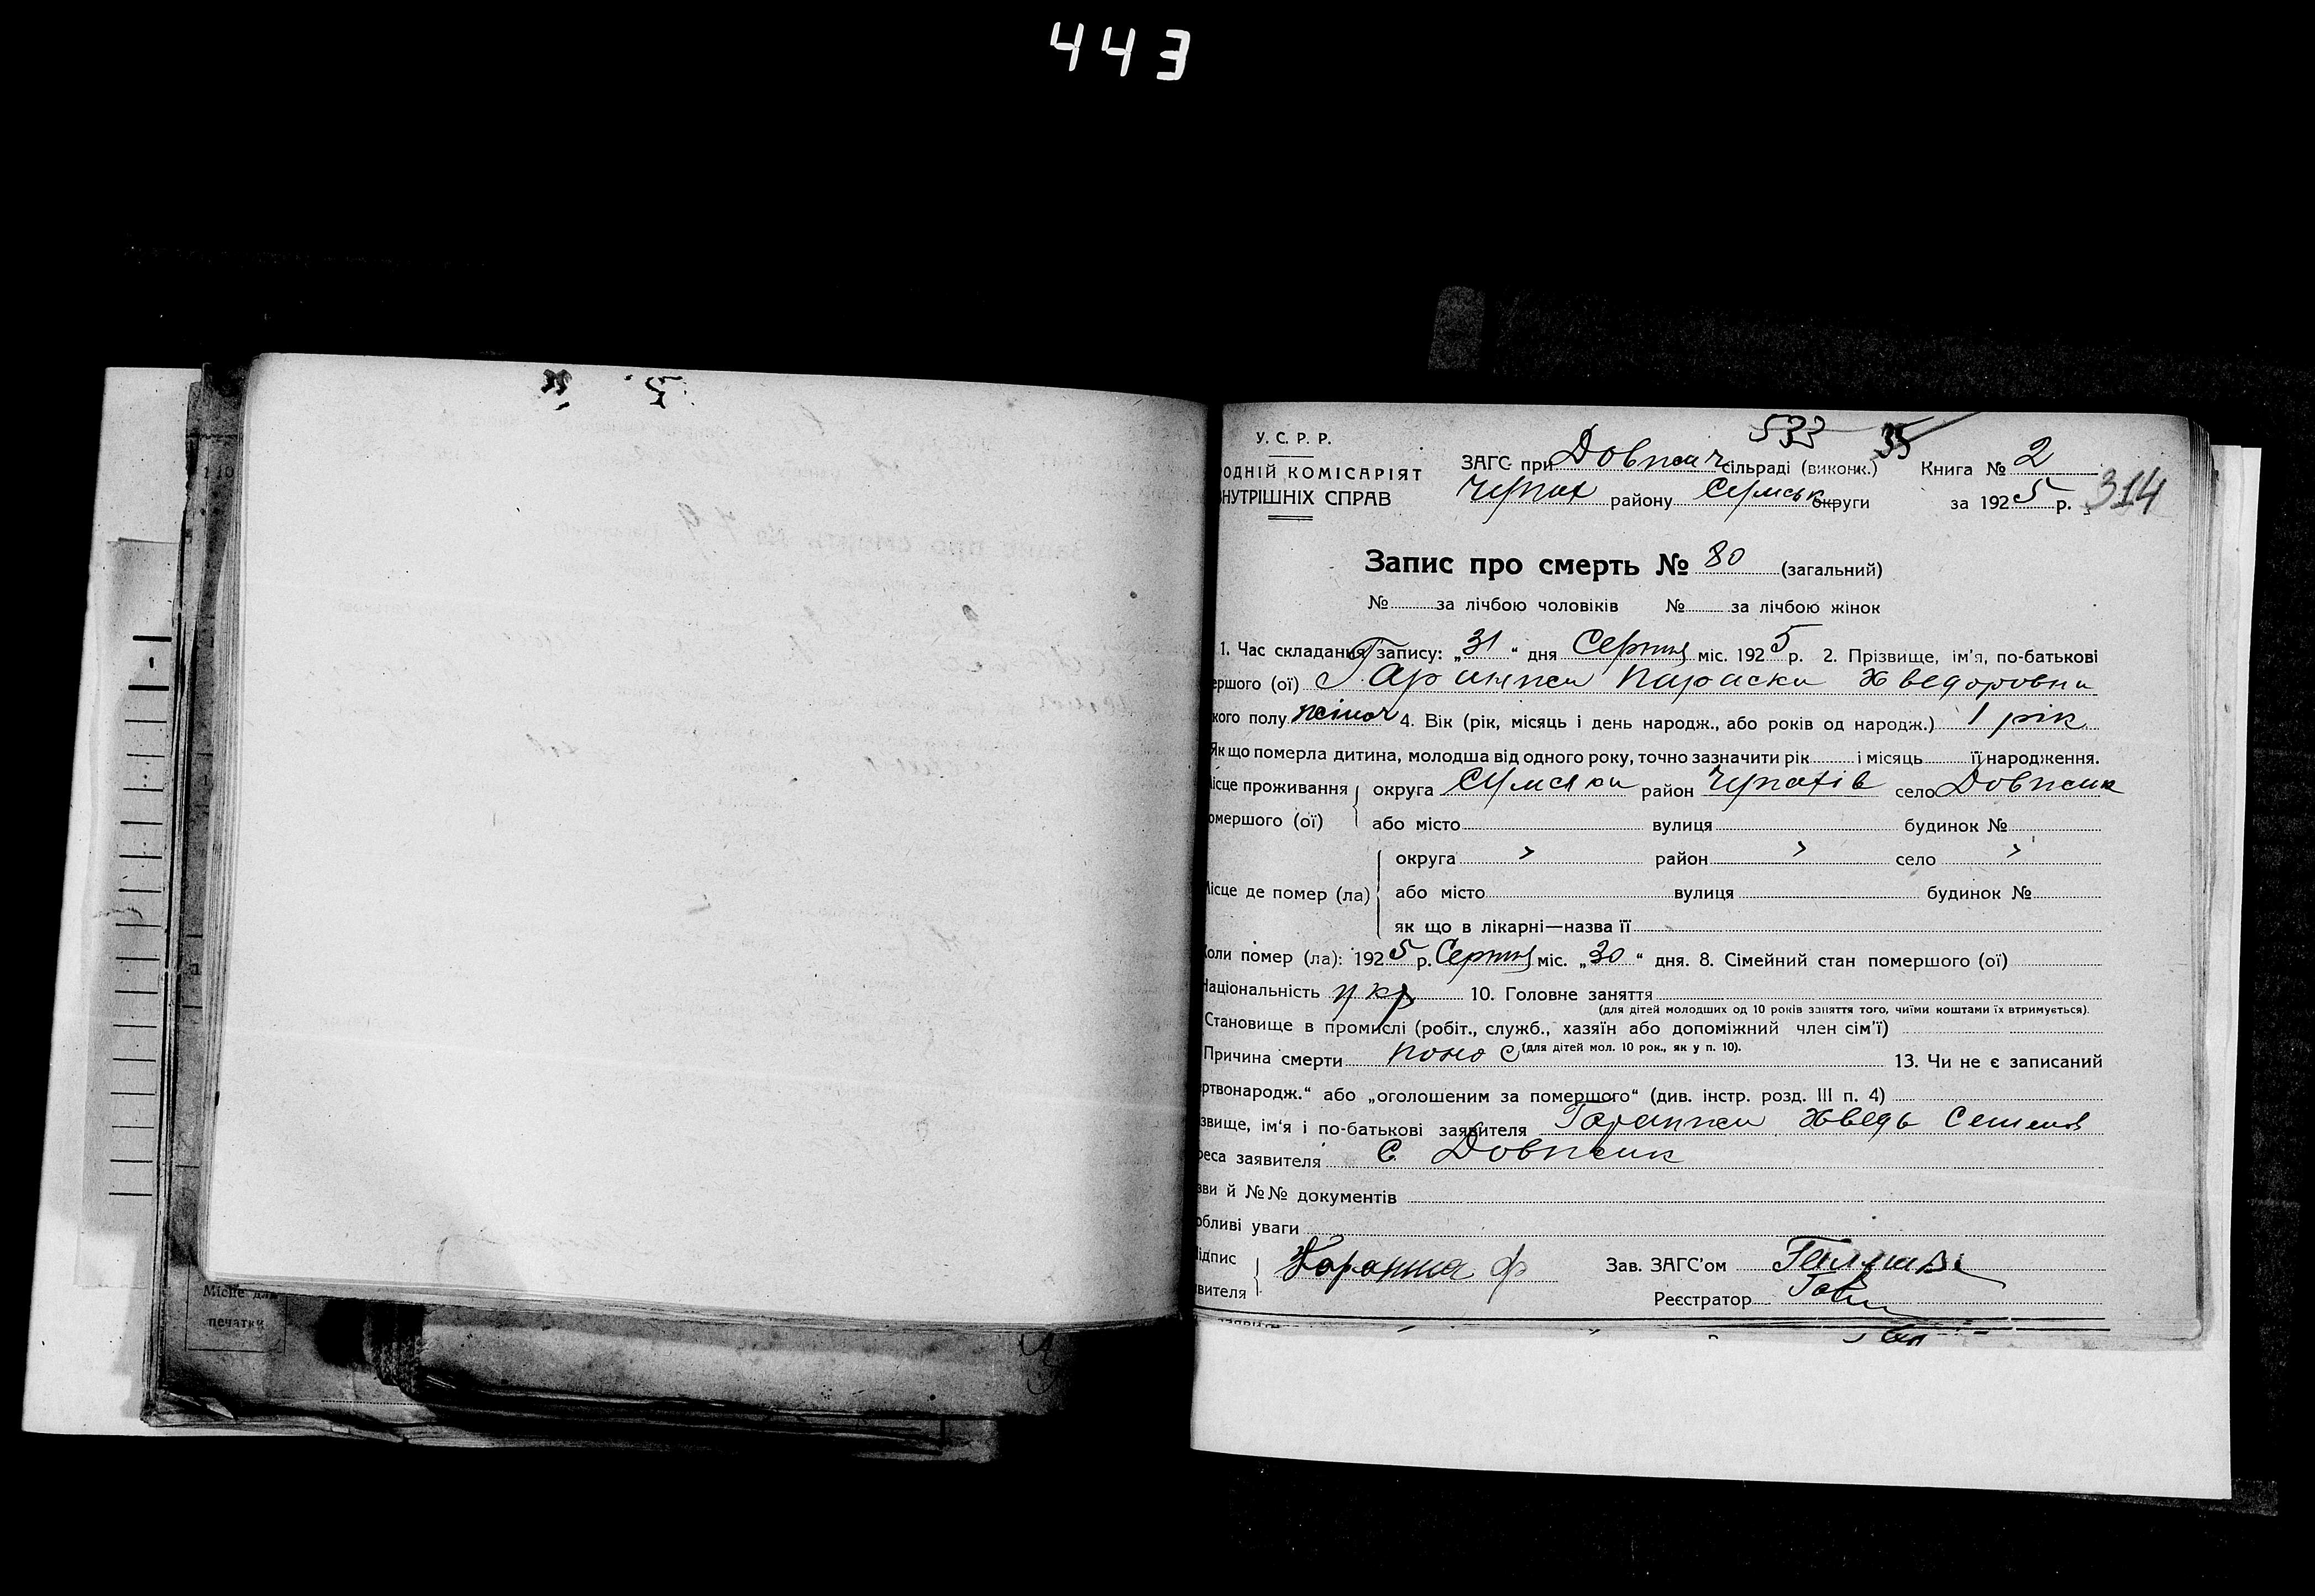 443
533 35
У. С. Р. Р.
ОДНІЙ КОМІСАРІЯТ
НУТРІШНІХ СПРАВ
ЗАГС при Довжич сільраді (виконк.) Книга № 2
району Сумськ округи за 1925 р. 314
Запис про смерть № 80 (загальний)
№ за лічбою чоловіків № за лічбою жінок
1. Час складання запису: „31“ дня Серпня міс. 1925 р. 2. Прізвище, ім'я, по-батькові
ершого (ої) Параски Хведоровни
кого полу жіноч 4. Вік (рік, місяць і день народж., або років од народж.) 1 рік
Як що померла дитина, молодша від одного року, точно зазначити рік і місяць її народження.
ісце проживання округа Сумська район село Довжик
омершого (ої) або місто вулиця будинок №
округа " район " село "
ісце де помер (ла) або місто вулиця будинок №
як що в лікарні—назва її
оли помер (ла): 1925 р. Серпня міс. „30“ дня. 8. Сімейний стан помершого (ої)
Національність укр 10. Головне заняття
(для дітей молодших од 10 років заняття того, чиїми коштами їх втримується).
Становище в промислі (робіт., служб., хазяїн або допоміжний член сім'ї)
(для дітей мол. 10 рок., як у п. 10).
Причина смерти понос 13. Чи не є записаний
ртвонародж.“ або „оголошеним за помершого“ (див. інстр. розд. III п. 4)
звище, ім'я і по-батькові заявителя Хведь Семенов
реса заявителя С. Довжик
зви й №№ документів
обливі уваги
ідпис Ф Зав. ЗАГС'ом
вителя Реєстратор
Місце для
печатки